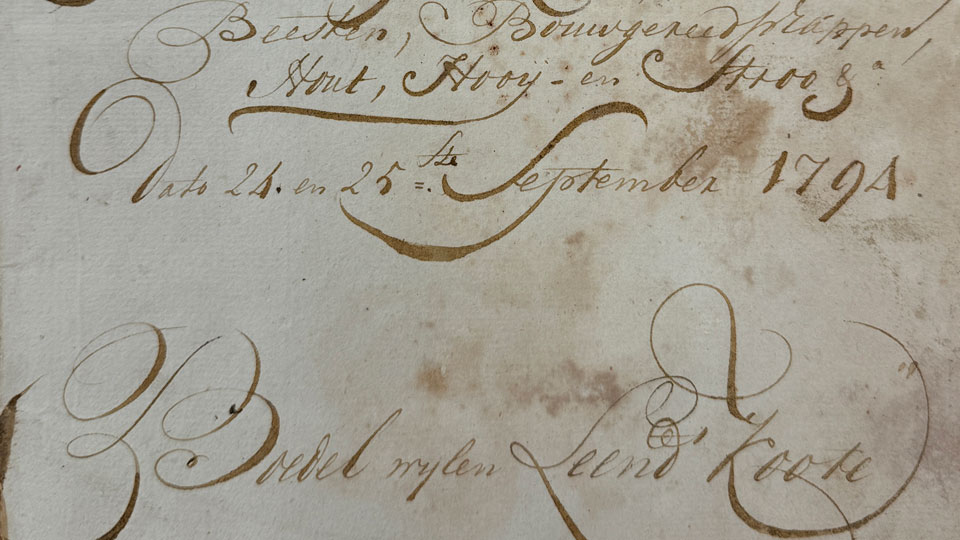 Beesten, Bouwgereedschappen,
Hout, Hooij- en Stroo &a.
Dato 24. en 25=ste. September 1794.
Boedel wylen Leend.s Koote